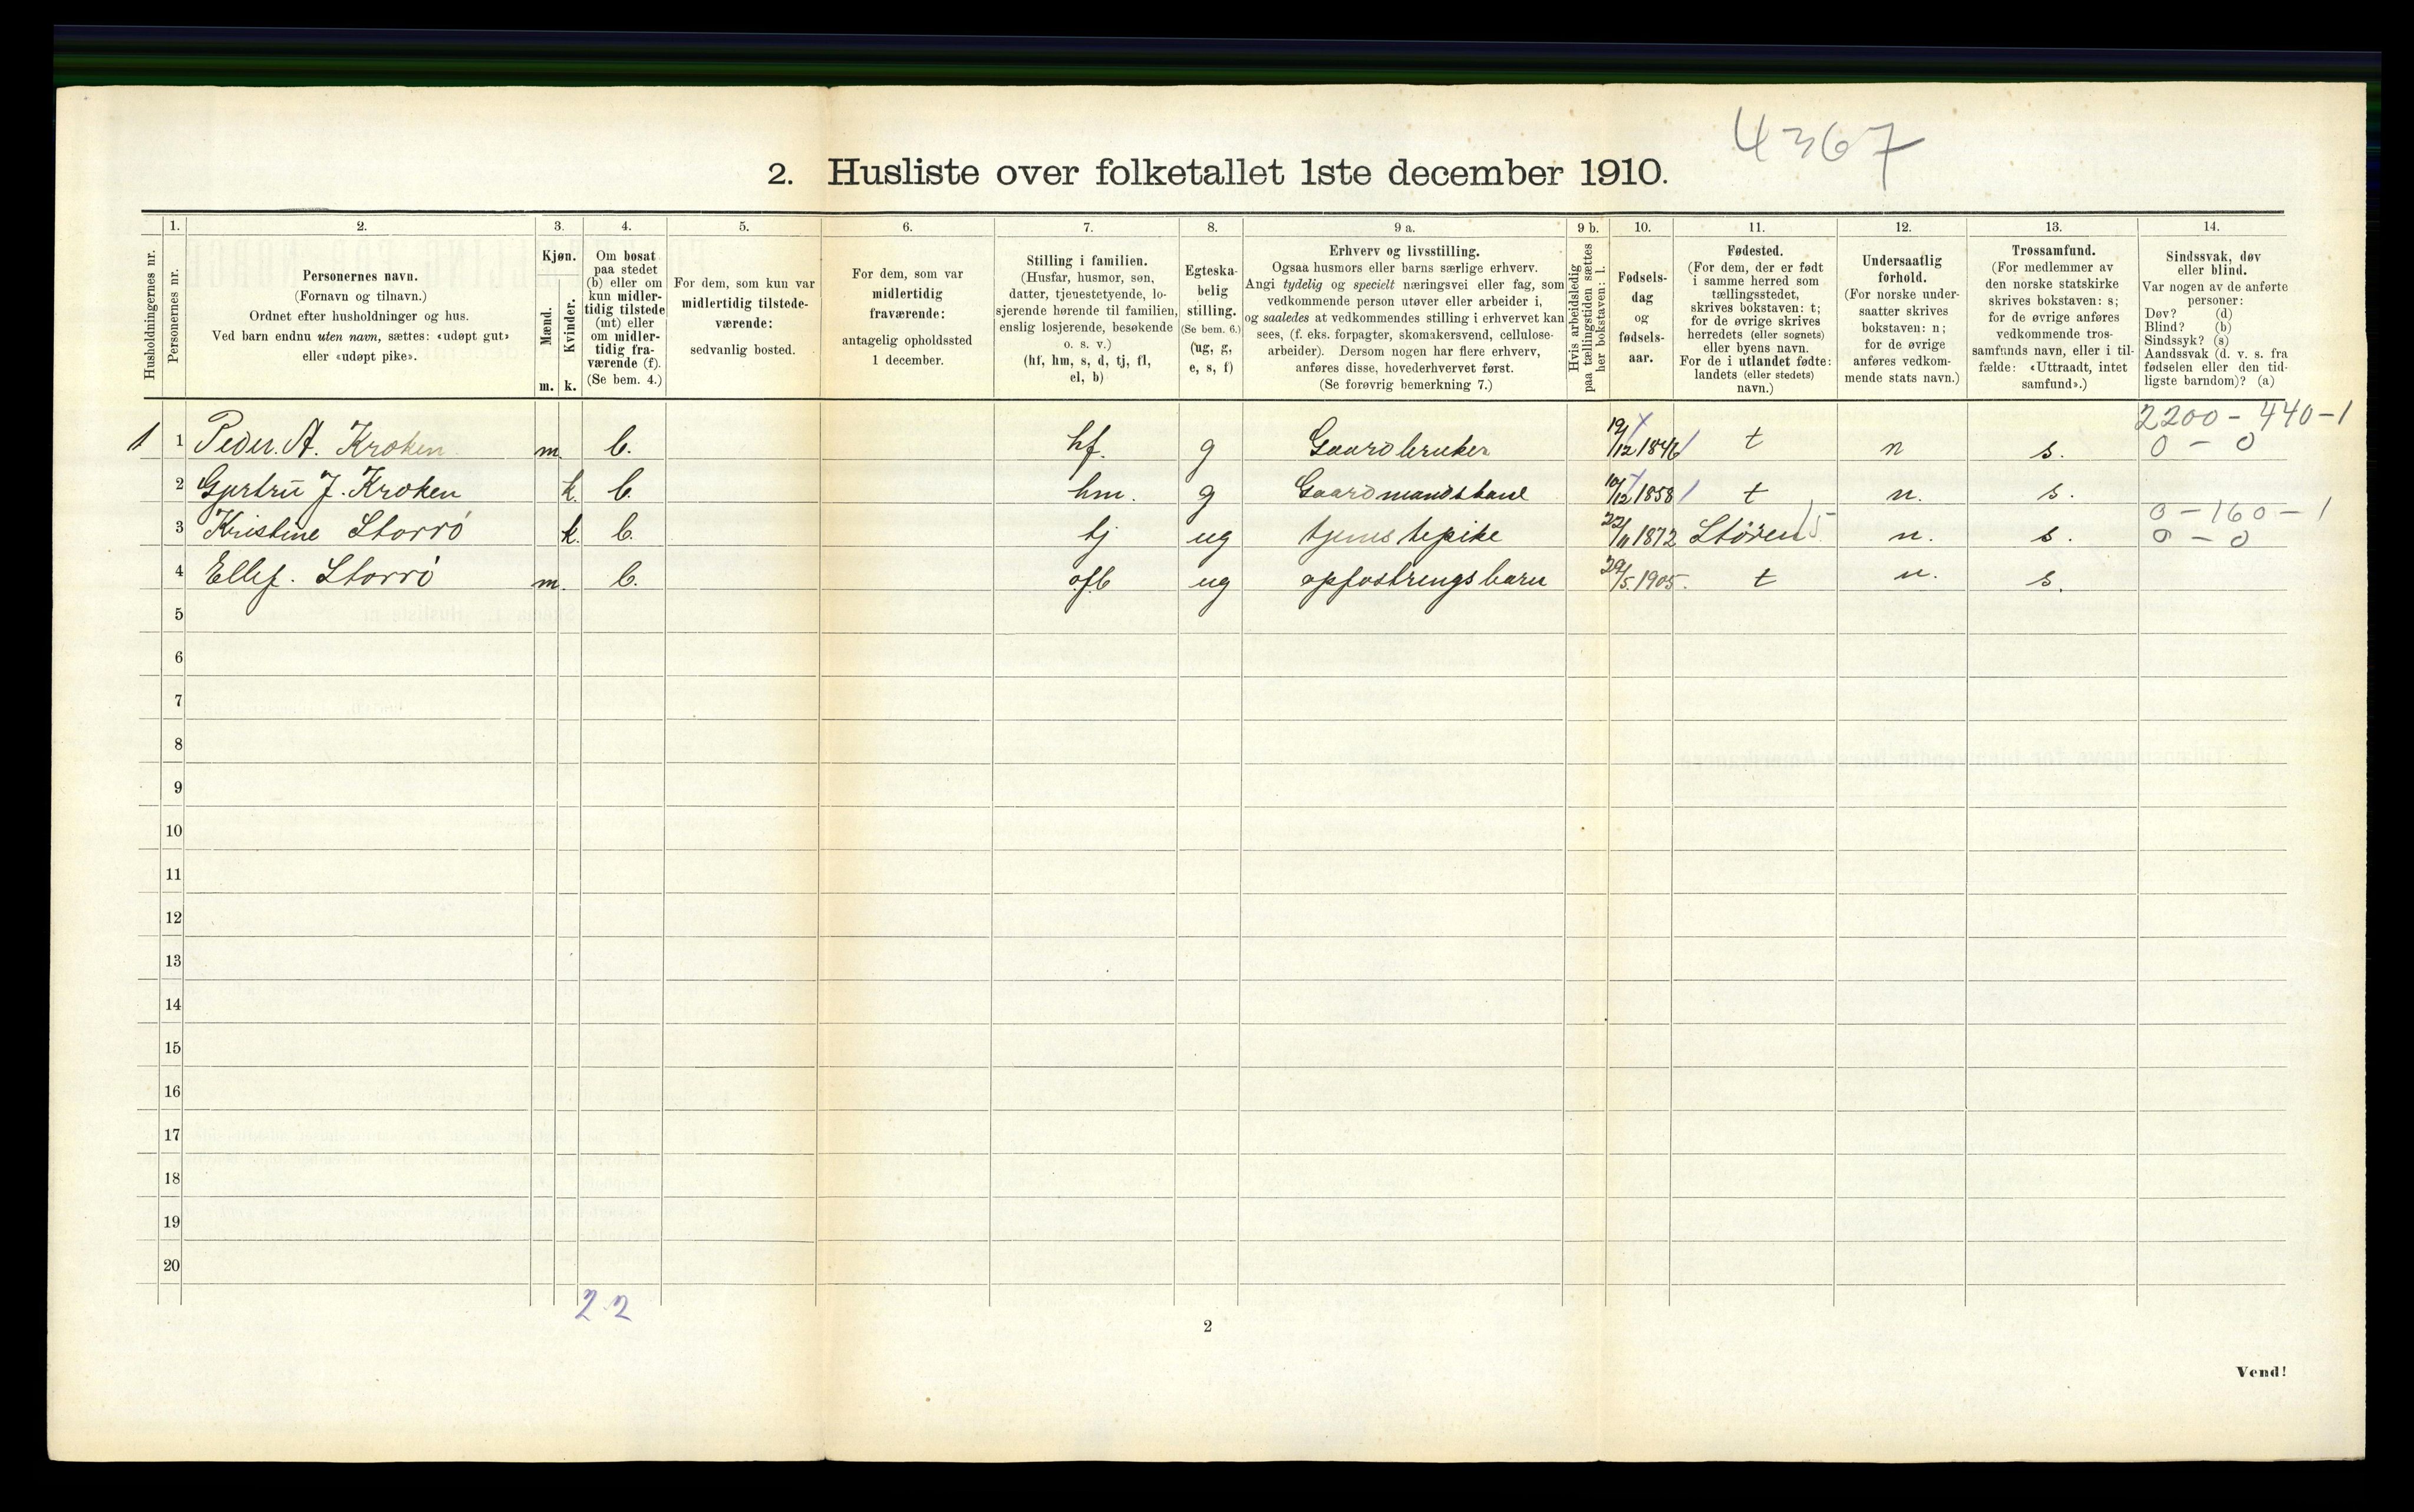 4367
2. Husliste over folketallet 1ste december 1910.
Husholdningernes nr.
1.
Personernes nr.
2.
Personernes navn.
(Fornavn og tilnavn.)
Ordnet efter husholdninger og hus.
Ved barn endnu uten navn, sættes: «udøpt gut»
eller «udøpt pike».
3.
Kjøn.
Mænd.
Kvinder.
m. k.
4.
Om bosat
paa stedet
(b) eller om
kun midler-
tidig tilstede
(mt) eller
om midler-
tidig fra-
værende (f).
(Se bem. 4.)
5.
For dem, som kun var
midlertidig tilstede-
værende:
sedvanlig bosted.
6.
For dem, som var
midlertidig
fraværende:
antagelig opholdssted
1 december.
7.
Stilling i familien.
(Husfar, husmor, søn,
datter, tjenestetyende, lo-
sjerende hørende til familien,
enslig losjerende, besøkende
o. s. v.)
(hf, hm, s, d, tj, fl,
el, b)
8.
Egteska-
belig
stilling.
(Se bem. 6.)
(ug, g,
e, s, f)
9 a.
Erhverv og livsstilling.
Ogsaa husmors eller barns særlige erhverv.
Angi tydelig og specielt næringsvei eller fag, som
vedkommende person utøver eller arbeider i,
og saaledes at vedkommendes stilling i erhvervet kan
sees, (f. eks. forpagter, skomakersvend, cellulose-
arbeider). Dersom nogen har flere erhverv,
anføres disse, hovederhvervet først.
(Se forøvrig bemerkning 7.)
9 b.
Hvis arbeidsledig
paa tællingstiden sættes
her bokstaven: l.
10.
Fødsels-
dag
og
fødsels-
aar.
11.
Fødested.
(For dem, der er født
i samme herred som
tællingsstedet,
skrives bokstaven: t;
for de øvrige skrives
herredets (eller sognets)
eller byens navn.
For de i utlandet fødte:
landets (eller stedets)
navn.)
12.
Undersaatlig
forhold.
(For norske under-
saatter skrives
bokstaven: n;
for de øvrige
anføres vedkom-
mende stats navn.)
13.
Trossamfund.
(For medlemmer av
den norske statskirke
skrives bokstaven: s;
for de øvrige anføres
vedkommende tros-
samfunds navn, eller i til-
fælde: «Uttraadt, intet
samfund».)
14.
Sindssvak, døv
eller blind.
Var nogen av de anførte
personer:
Døv? (d)
Blind? (b)
Sindssyk? (s)
Aandssvak (d. v. s. fra
fødselen eller den tid-
ligste barndom)? (a)
2200 - 440 - 1
1 1 Peder. A. Kroken m. b. hf. g Gaardbruker 19/12 1846 t n s. 0 - 0
2 Gjertru J. Kroken k. b hm. g Gaardmandskone 10/12 1858 t n. s.
0 - 160 - 1
3 Kristine Storrø k. b. tj ug tjenestepike 22/11 1872 Støren n. s. 0 - 0
4 Ellef. Storrø m. b. ofb ug opfostringsbarn 29/5. 1905. t n. s.
5
6
7
8
9
10
11
12
13
14
15
16
17
18
19
20
2 2
2
Vend!